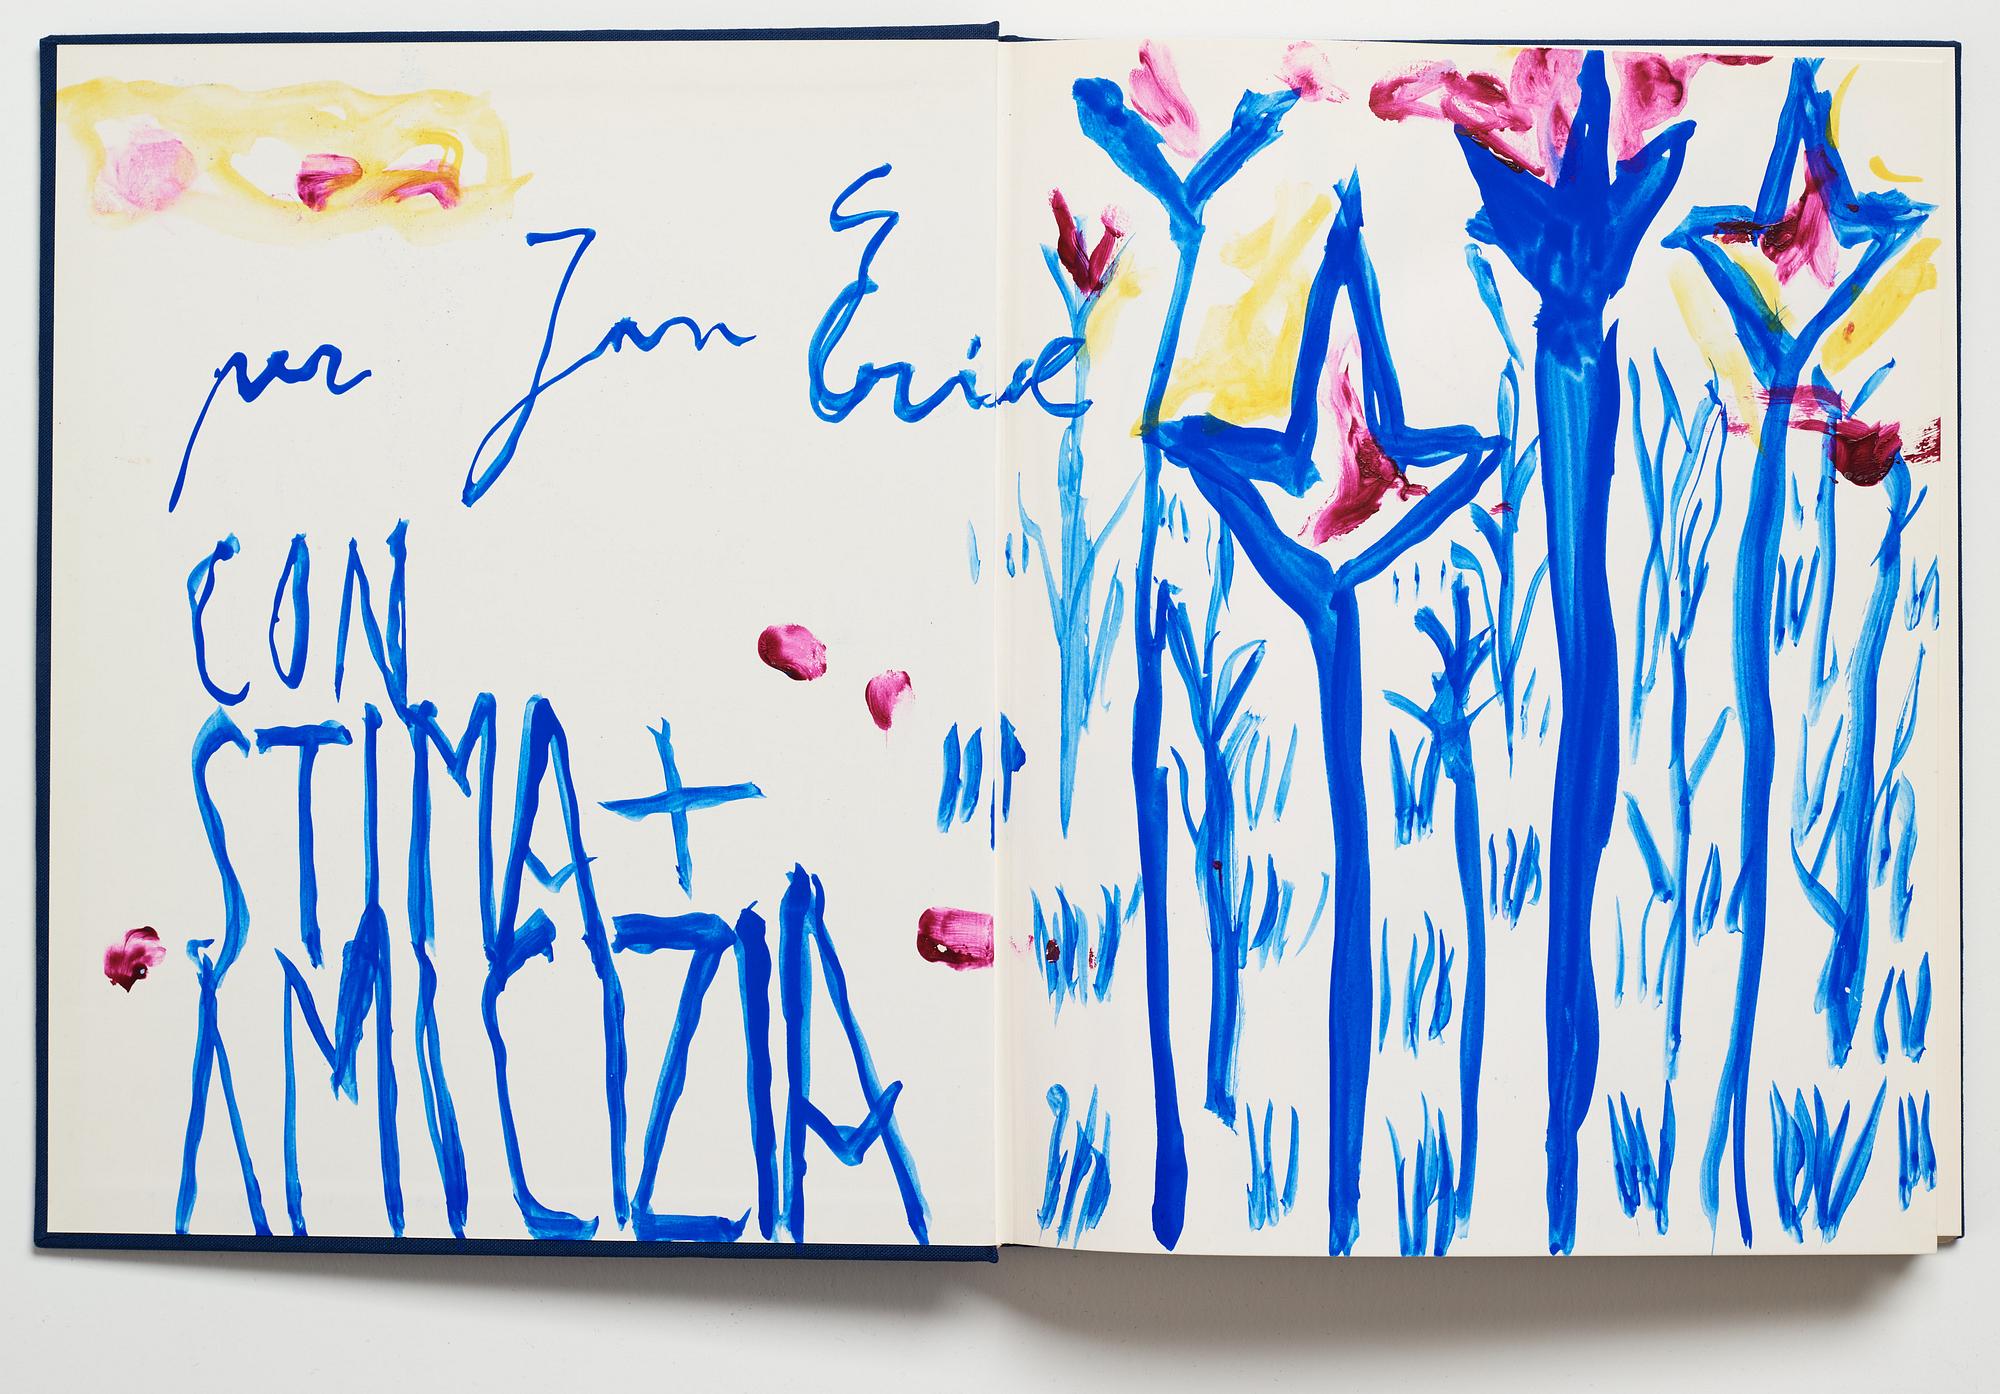 per Jan Eric
CON
STIMA +
AMICIZIA